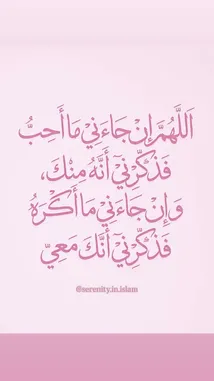 اَللَّهُمَّ إِنْ جَاءَنِيْ مَا أُحِبُّ
فَذَكِّرْنِيْ أَنَّهُ مِنْكَ،
وَإِنْ جَاءَنِيْ مَا أَكْرَهُ
فَذَكِّرْنِيْ أَنَّكَ مَعِيْ
@serenity.in.islam